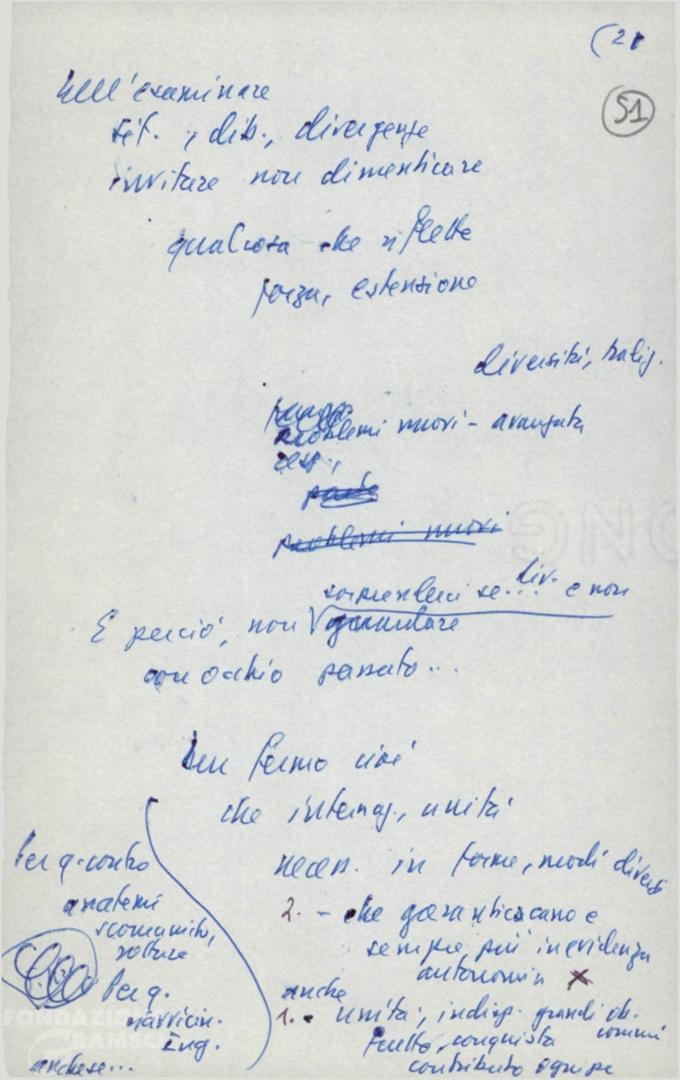 (21
51
Nell'esaminare
sit., dib., divergenze
invitare non dimenticare
qualcosa che riflette
forza, estensione
diversità, realiz.
problemi nuovi - avanzata
ess.,
problemi nuovi
sorprenderci se... div. e non
E perciò, non guardare
con occhio passato...
Ben fermo cioè
che internaz., unità
necess. in forme, modi diversi
2. - che garantiscano e
sempre più in evidenza
autonomia x
anche
1. - unità, indisp. grandi ob.
comuni
frutto, conquista
contributo ognuno
Per q. contro
anatemi
scomuniche,
rotture
Per q.
riavvicin.
Ing.
anche se...
FONDAZIONE
GRAMSCI